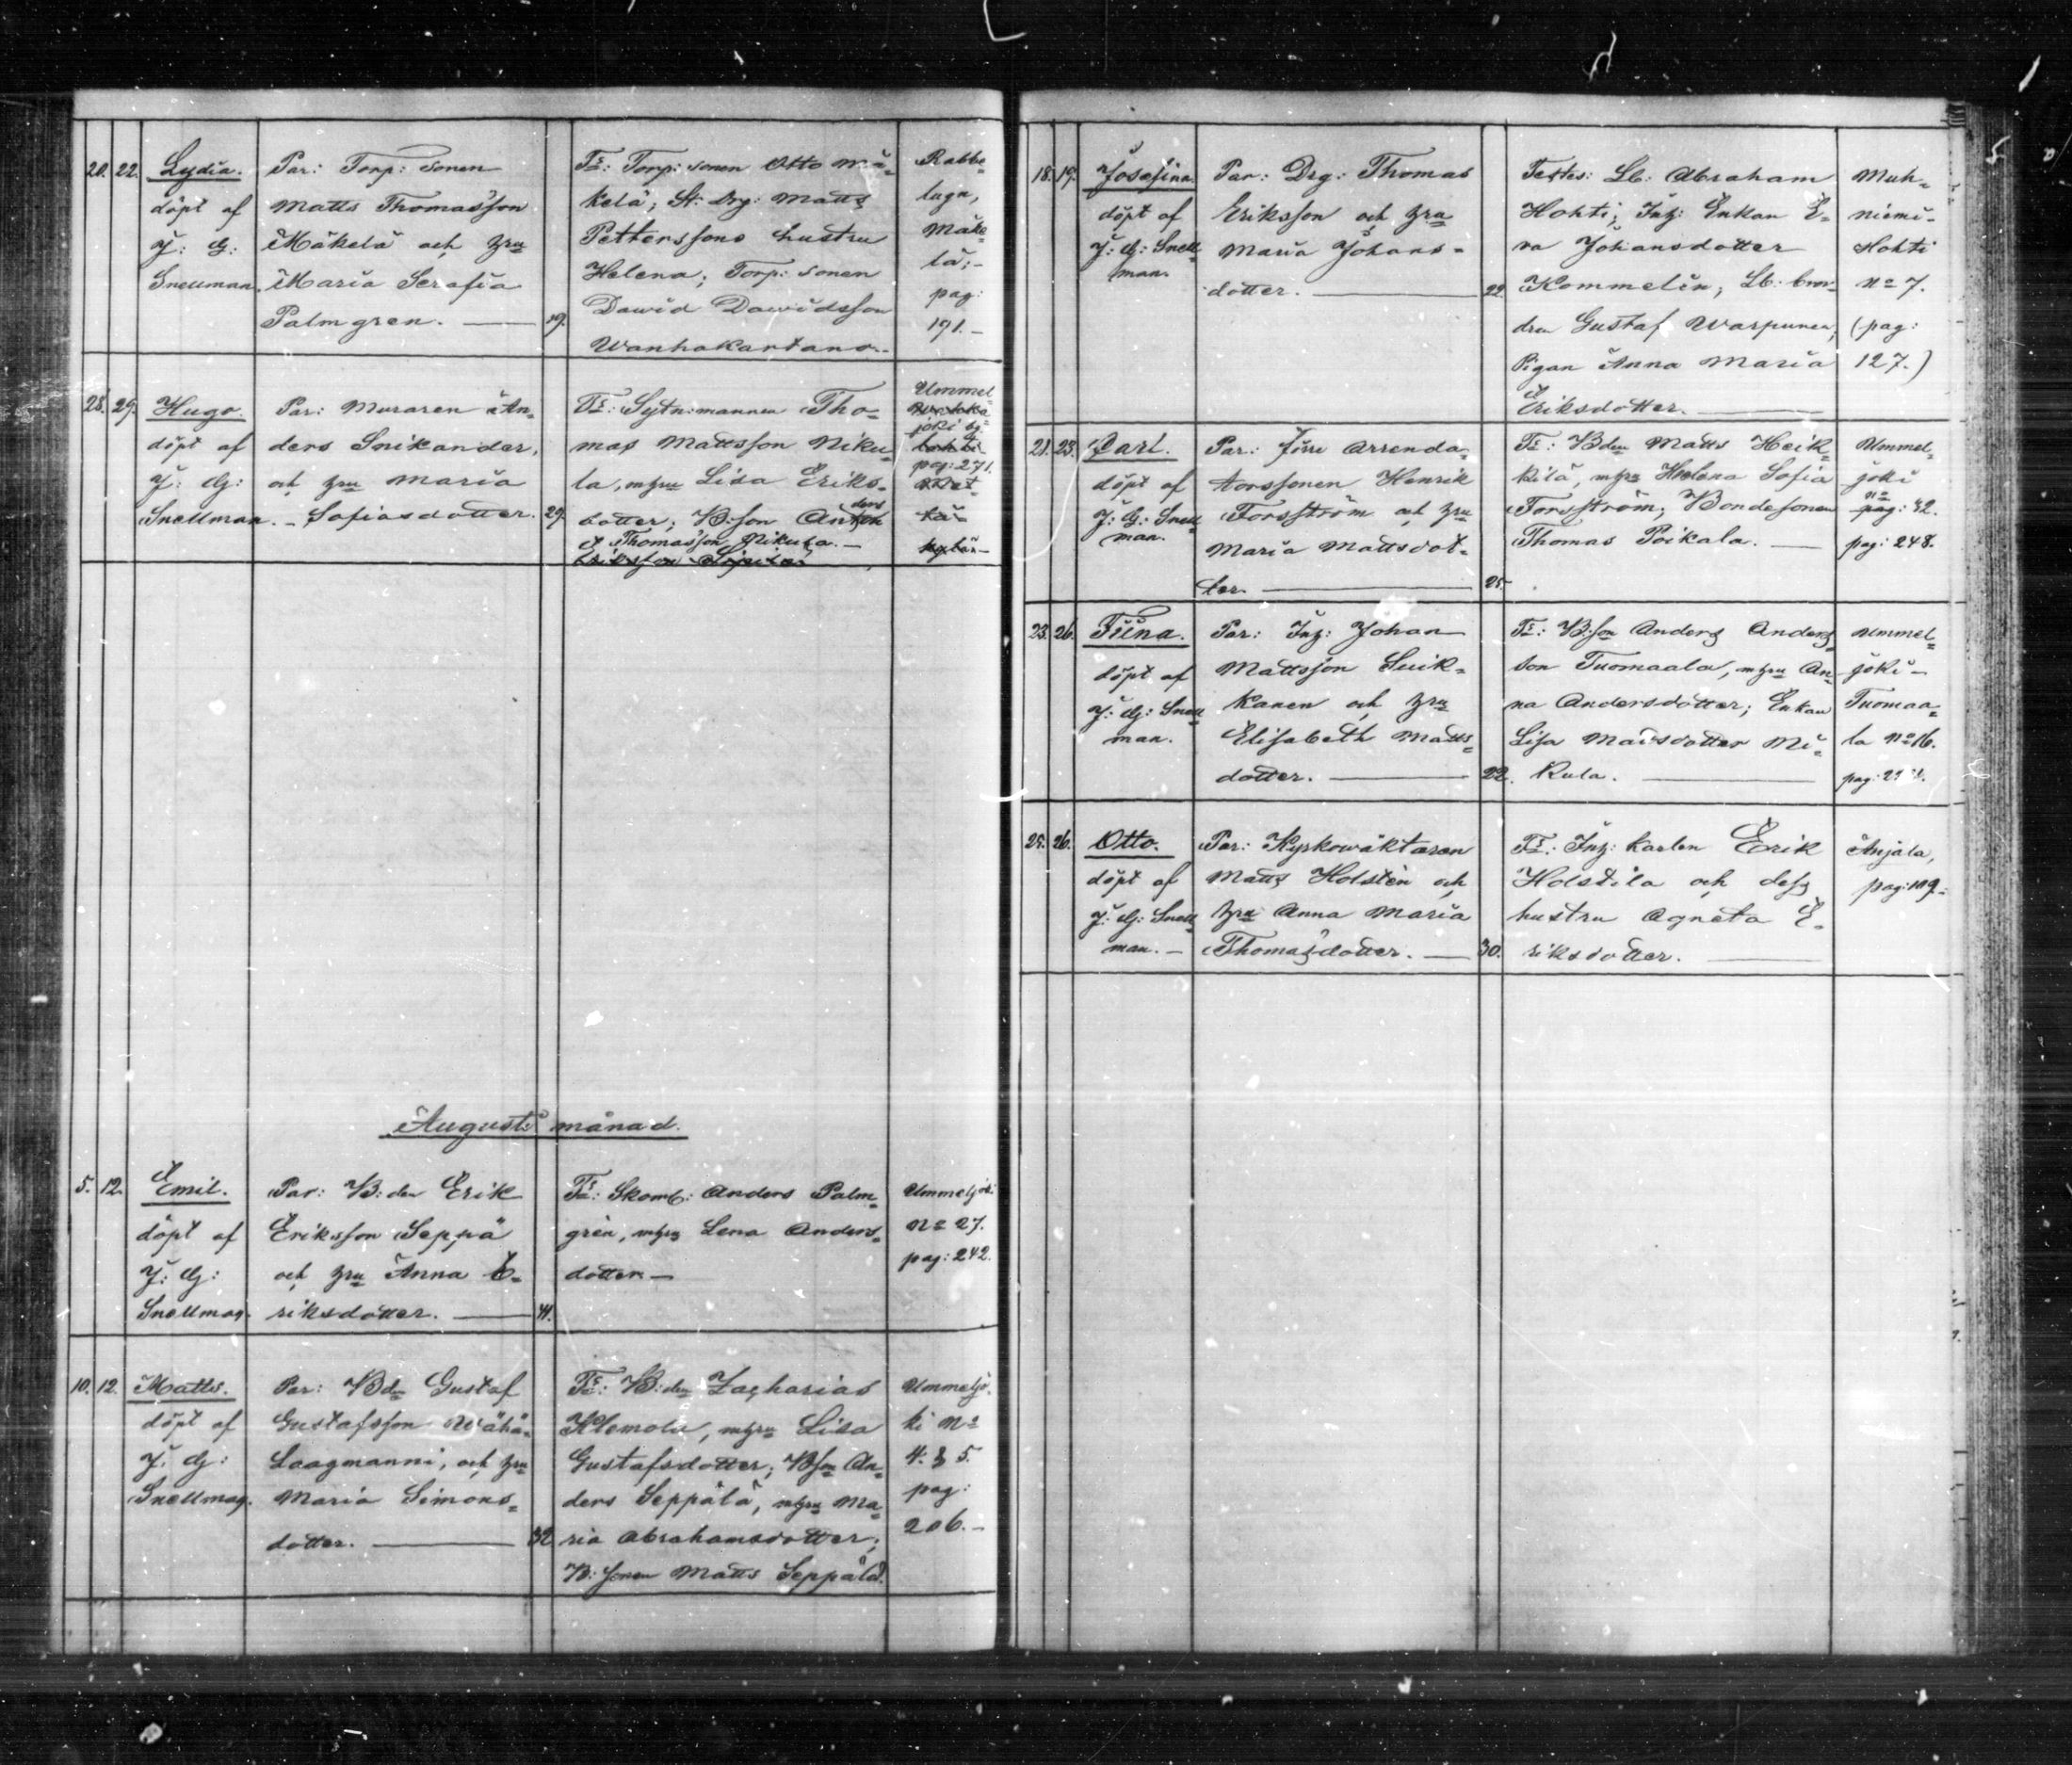 20. 22. Lydia. döpt af J: G: Snellman.
Par: Torp: sonen
Matts Thomasson
Mäkelä och hru
Maria Serafia
Palmgren. — 19.
Ts: Torp: sonen Otto Mä=
kelä; St: Drg: Matts
Petterssons hustru
Helena; Torp: sonen
Dawid Dawidsson
Wanhakartano.
Rabbe=
luga,
Mäke
lä;-
pag:
191.-
28. 29. Hugo. döpt af J: G: Snellman. -
Par: Muraren An=
ders Snikander,
och hru Maria
Sofiasdotter. 29.
Ts: Sytn:mannen Tho=
mas Mattsson Niku=
la, mhru Lisa Eriks=
dotter; B:son An
ders
Thomasson Nikula. -
Ummel=
joki by
pag: 271.
Augusti månad.
5. 12. Emil. döpt af J: G: Snellman.
Par: B:den Erik
Eriksson Seppä
och hru Anna E=
riksdotter. — 41.
Ts: Skomk: Anders Palm=
grén, mhru Lena Anders=
dotter. -
Ummeljoki
No 27.
pag: 242.
10. 12. Matts. döpt af J: G: Snellman.
Par: Bdn Gustaf
Gustafsson Wähä=
Laagmanni, och hru
Maria Simons=
dotter. — 32
Ts: B:den Zacharias
Klemola, mhru Lisa
Gustafsdotter; Bson An=
ders Seppälä, mhru Ma=
ria Abrahamsdotter;
B: sonen Matts Seppälä.
Ummeljo=
ki No
4. & 5.
pag:
206.-
18. 19. Josefina. döpt af J: G: Snell=
man.
Par: Drg: Thomas
Eriksson och hru
Maria Johans=
dotter. — 22.
Testes: Lb: Abraham
Hohti; Inh: Enkan E=
va Johansdotter
Kommelin; Lb: bro=
dren Gustaf Warpunen;
Pigan Anna Maria
Eriksdotter. —
Muh=
niemi=
Hohti
No 7.
(pag:
127.)
21. 23. Carl. döpt af J: G: Snell=
man.
Par: Förre Arrenda=
torssonen Henrik
Forsström och hru
Maria Mattsdot=
ter. — 25.
Ts: Bden Matts Heik=
kilä, mhru Helena Sofia
Forsström; Bondesonen
Thomas Poikala. —
Ummel=
joki
No 42.
pag: 248.
23. 26. Tiina. döpt af J: G: Snell
man.
Par: Inh: Johan
Mattsson Suik=
kanen och hru
Elisabeth Matts=
dotter. — 22.
Ts: B:son Anders Anders
son Tuomaala, mhru An=
na Andersdotter; Enkan
Lisa Mattsdotter Ni=
kula. —
Ummel=
joki -
Tuomaa=
la No 16.
25. 26. Otto. döpt af J: G: Snell
man. -
Par: Kyrkowäktaren
Matts Holstén och
hru Anna Maria
Thomasdotter. — 30.
Ts: Inh: karlen Erik
Holstila och dess
hustru Agneta E=
riksdotter. —
Anjala,
pag: 109.